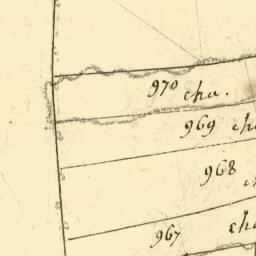 970 cha.
969 cha
968
967 cha